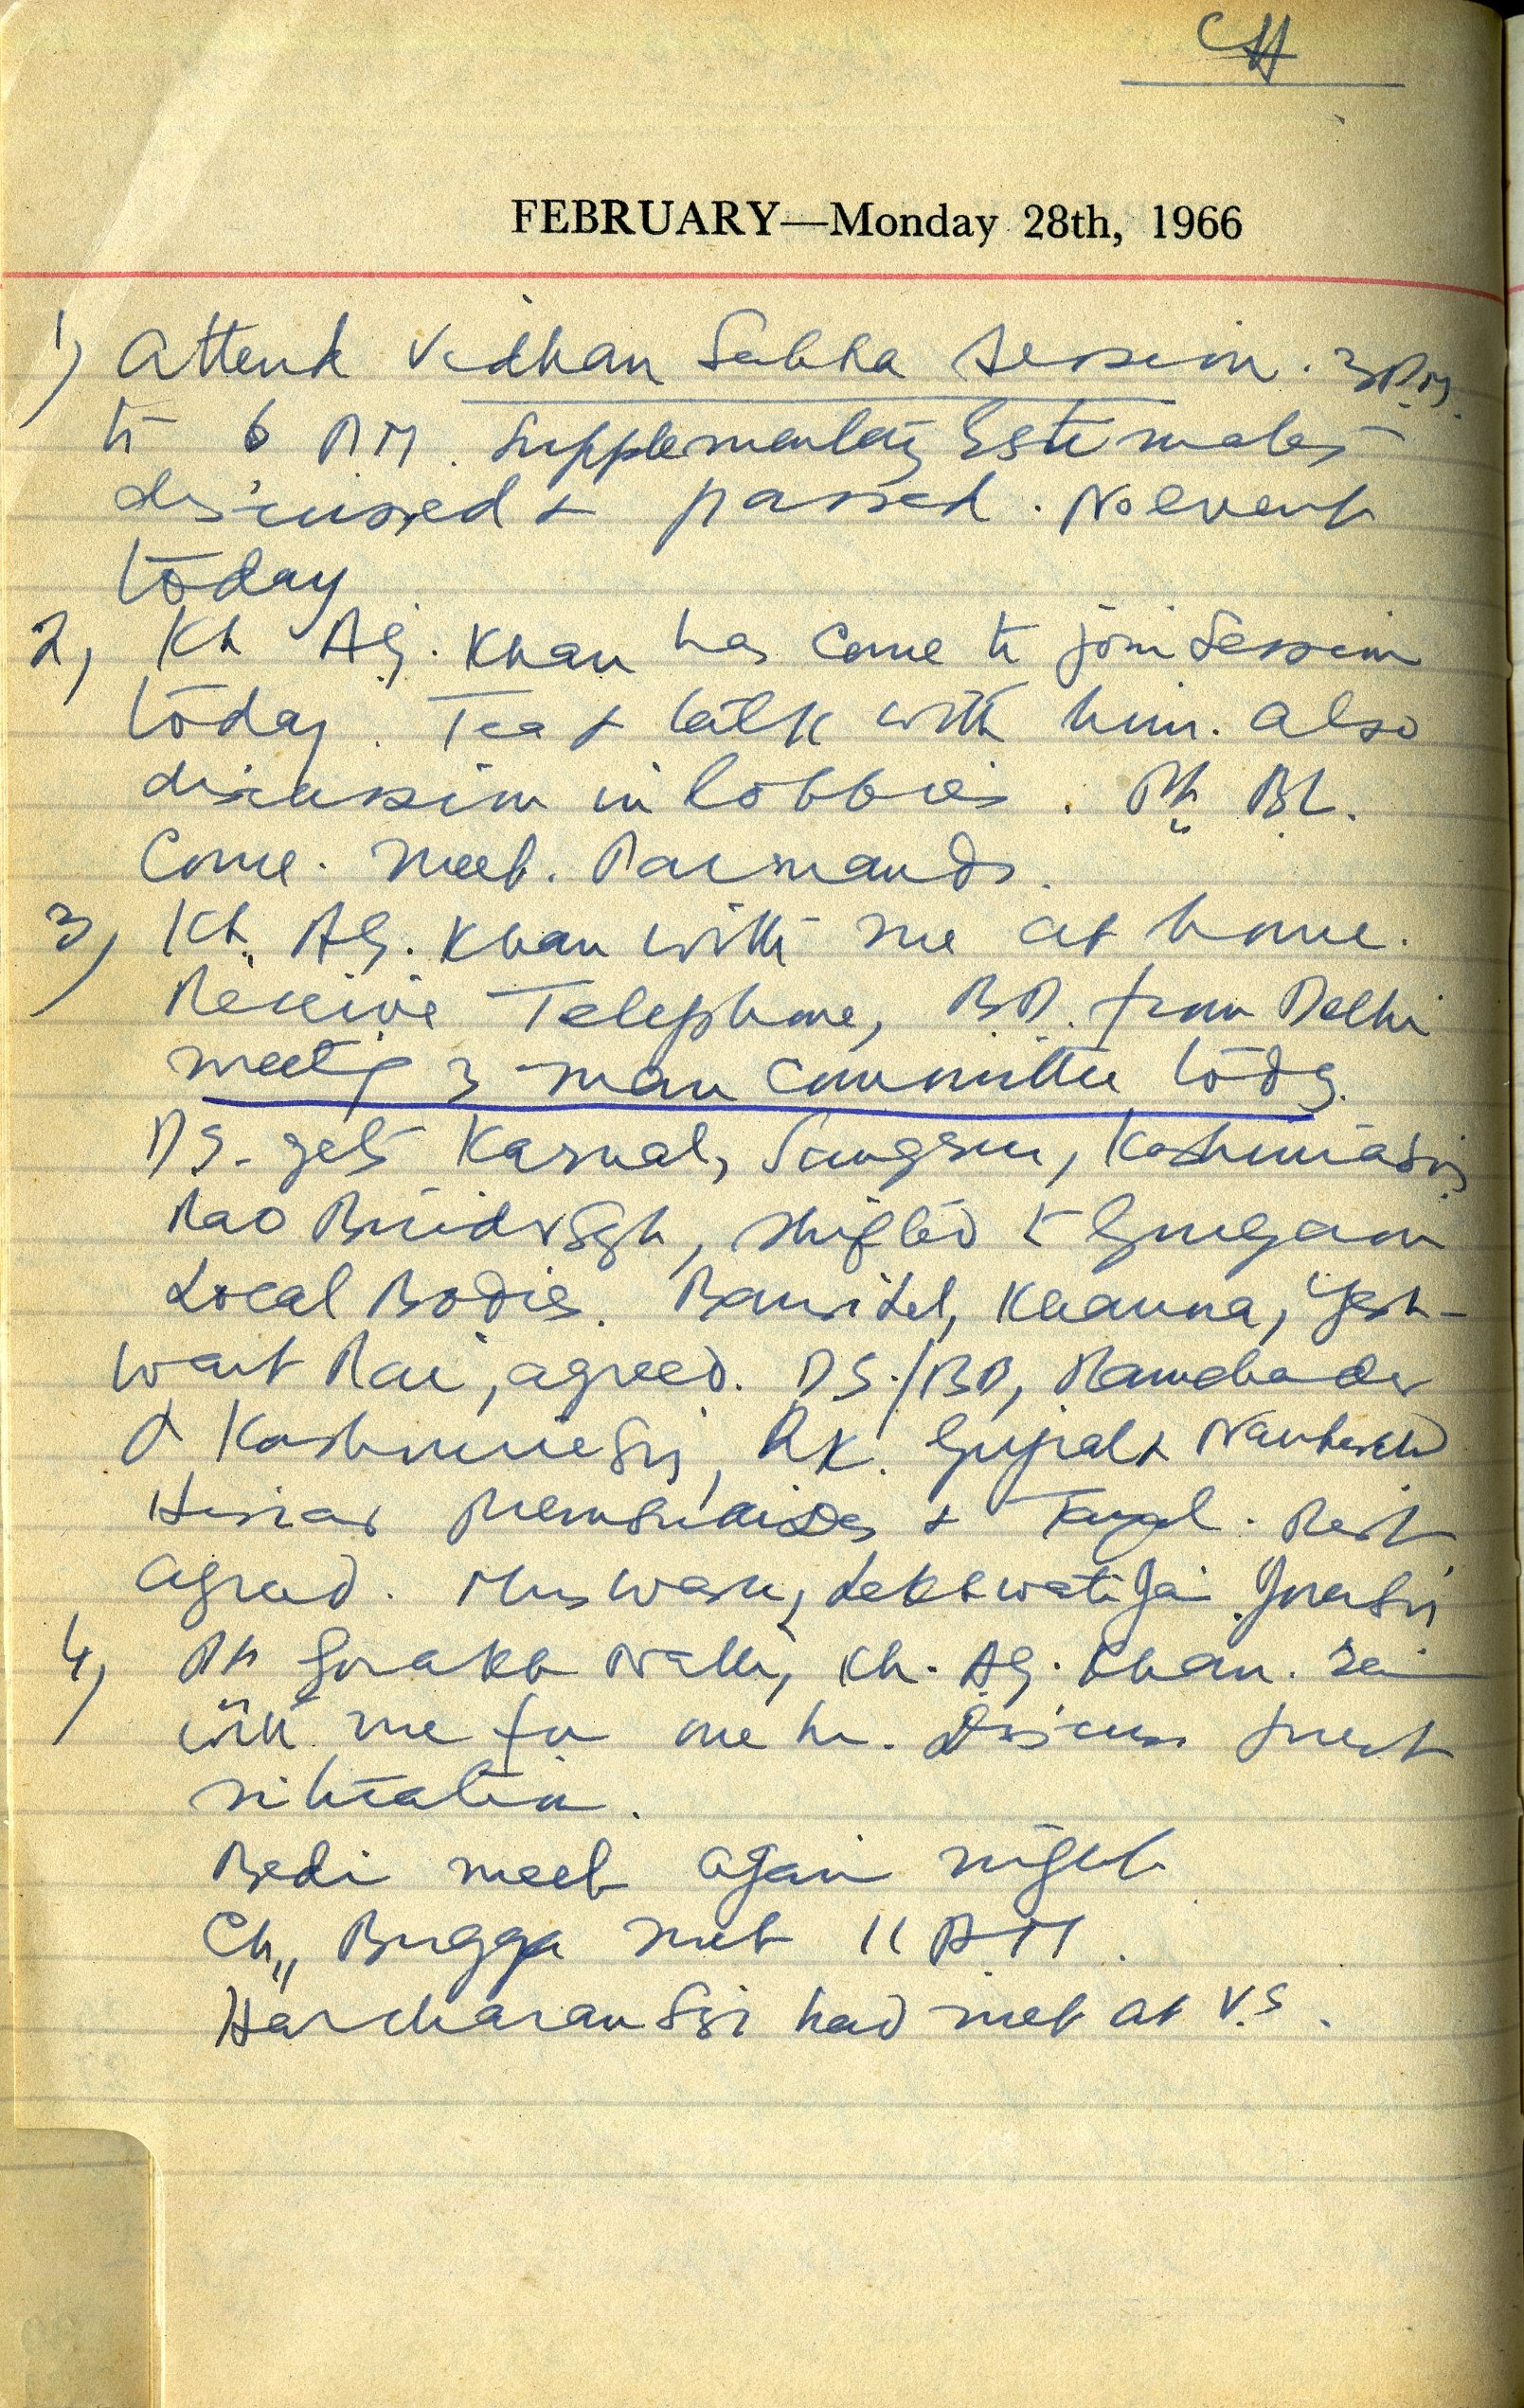 CH
FEBRUARY—Monday 28th, 1966
1) Attend Vidhan Sabha Session. 3 P.M.
to 6 P.M. Supplementary Estimates
discussed & passed. No event
today
2, Kh AG. Khan has come to join Session
today. Tea & talk with him. also
discussion in lobbies. Pt. BL.
Come. meet.
3, Kh. AG. Khan with me at home.
Receive Telephone, BD. from Delhi
meetg 3 man Committee today.
DS. gets Karnal, Sangrur,
Rao, shifted to Gurgaon
Local Bodies. Bansi Lal, Khanna, Yash-
want Rai, agreed. DS./BD, Ramchander
& RK. Gujral &
Hissar & Tayal. Rest
agreed. Lekhwati Jain
4, Pt Gorakh Nath, Kh. AG. Khan.
with me for one hr. Discuss
situation.
Bedi meet again night
Ch,, Bugga met 11 AM.
Harcharan Sgh had met at V.S.